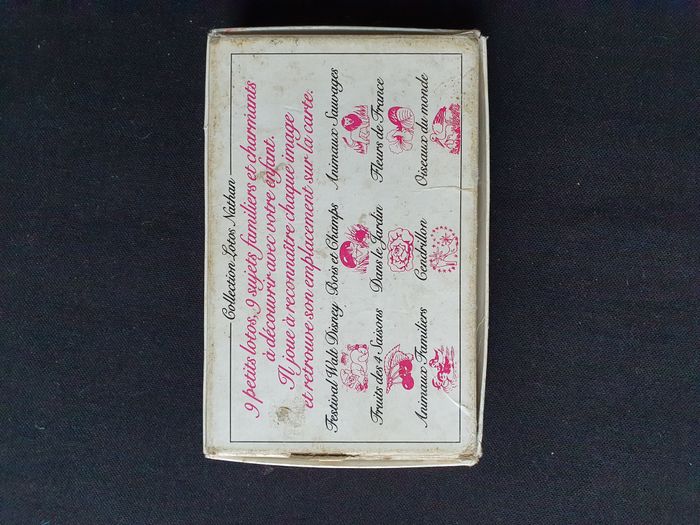 Collection Lotos Nathan
9 petits lotos, 9 sujets familiers et charmants
à découvrir avec votre enfant.
Il joue à reconnaître chaque image
et retrouve son emplacement sur la carte.
Festival Walt Disney Bois et Champs Animaux Sauvages
Fruits des 4 Saisons Dans le Jardin Fleurs de France
Animaux Familiers Cendrillon Oiseaux du monde